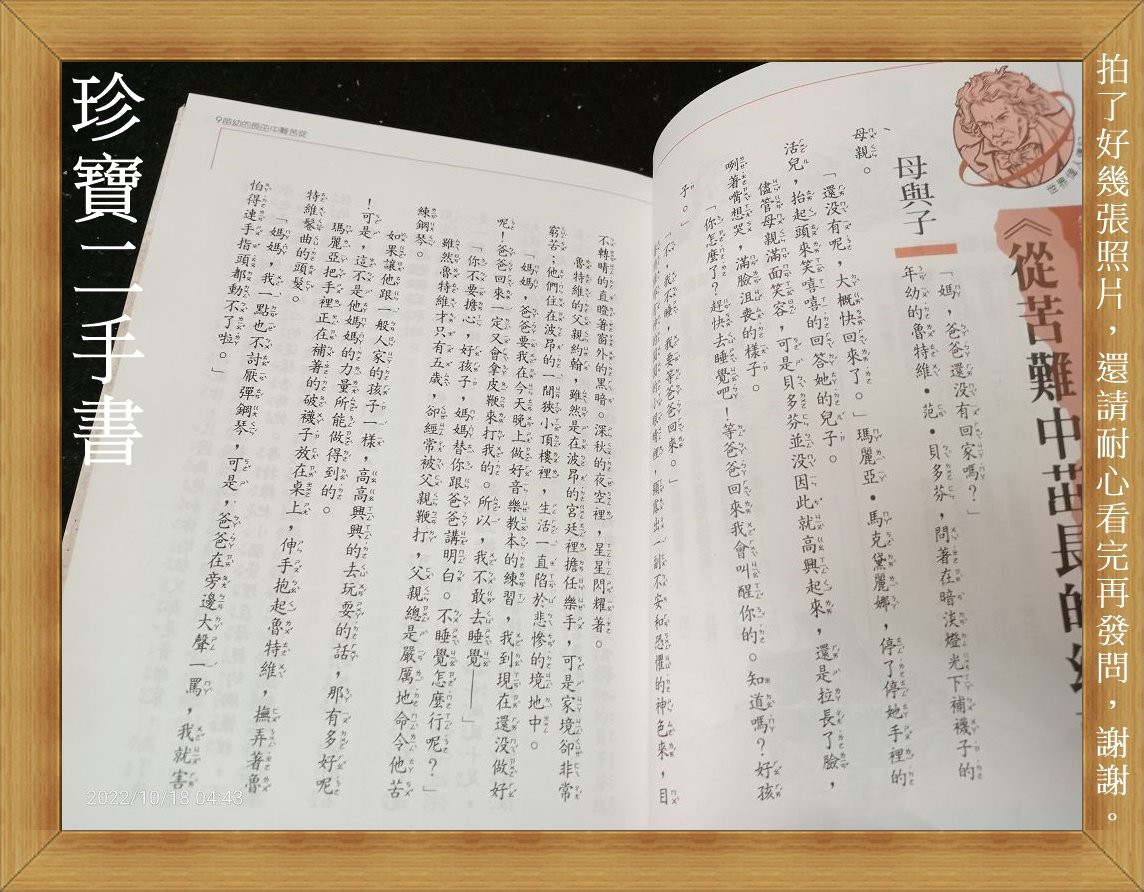 拍了好幾張照片，還請耐心看完再發問，謝謝。
珍寶二手書
世界偉
《從苦難中茁長的
母與子
「媽，爸爸還沒有回家嗎？」
年幼的魯特維•范•貝多芬，問著在暗淡燈光下補襪子的
母親。
「還沒有呢，大概快回來了。」瑪麗亞•馬克黛麗娜，停了停她手裡的
活兒，抬起頭來笑嘻嘻的回答她的兒子。
儘管母親滿面笑容，可是貝多芬並沒因此就高興起來，還是拉長了臉，
咧著嘴想哭，滿臉沮喪的樣子。
「你怎麼了？趕快去睡覺吧！等爸爸回來我會叫醒你的。知道嗎？好孩
子。」
「不，我不睡，我要等爸爸回來。」
顯露出一種不安和恐懼的神色來，目
9苗幼的長茁中難苦從
不轉睛的直瞪著窗外的黑暗。深秋的夜空裡，星星閃耀著。
魯特維的父親約翰，雖然是在波昂的宮廷裡擔任樂手，可是家境卻非常
窮苦；他們住在波昂的一間狹小頂樓裡，生活一直陷於悲慘的境地中。
「媽媽，爸爸要我在今天晚上做好音樂教本的練習，我到現在還沒做好
呢！爸爸回來一定又會拿皮鞭來打我的。所以，我不敢去睡覺——」
「你不要擔心，好孩子，媽媽替你跟爸爸講明白。不睡覺怎麼行呢？」
雖然魯特維才只有五歲，卻經常被父親鞭打，父親總是嚴厲地命令他苦
練鋼琴。
如果讓他跟一般人家的孩子一樣，高高興興的去玩耍的話，那有多好呢
！可是，這不是他媽媽的力量所能做得到的。
瑪麗亞把手裡正在補著的破襪子放在桌上，伸手抱起魯特維，撫弄著魯
特維鬈曲的頭髮。
「媽媽，我一點也不討厭彈鋼琴，可是，爸爸在旁邊大聲一罵，我就害
怕得連手指頭都動不了啦。」
2022/10/18 04:43